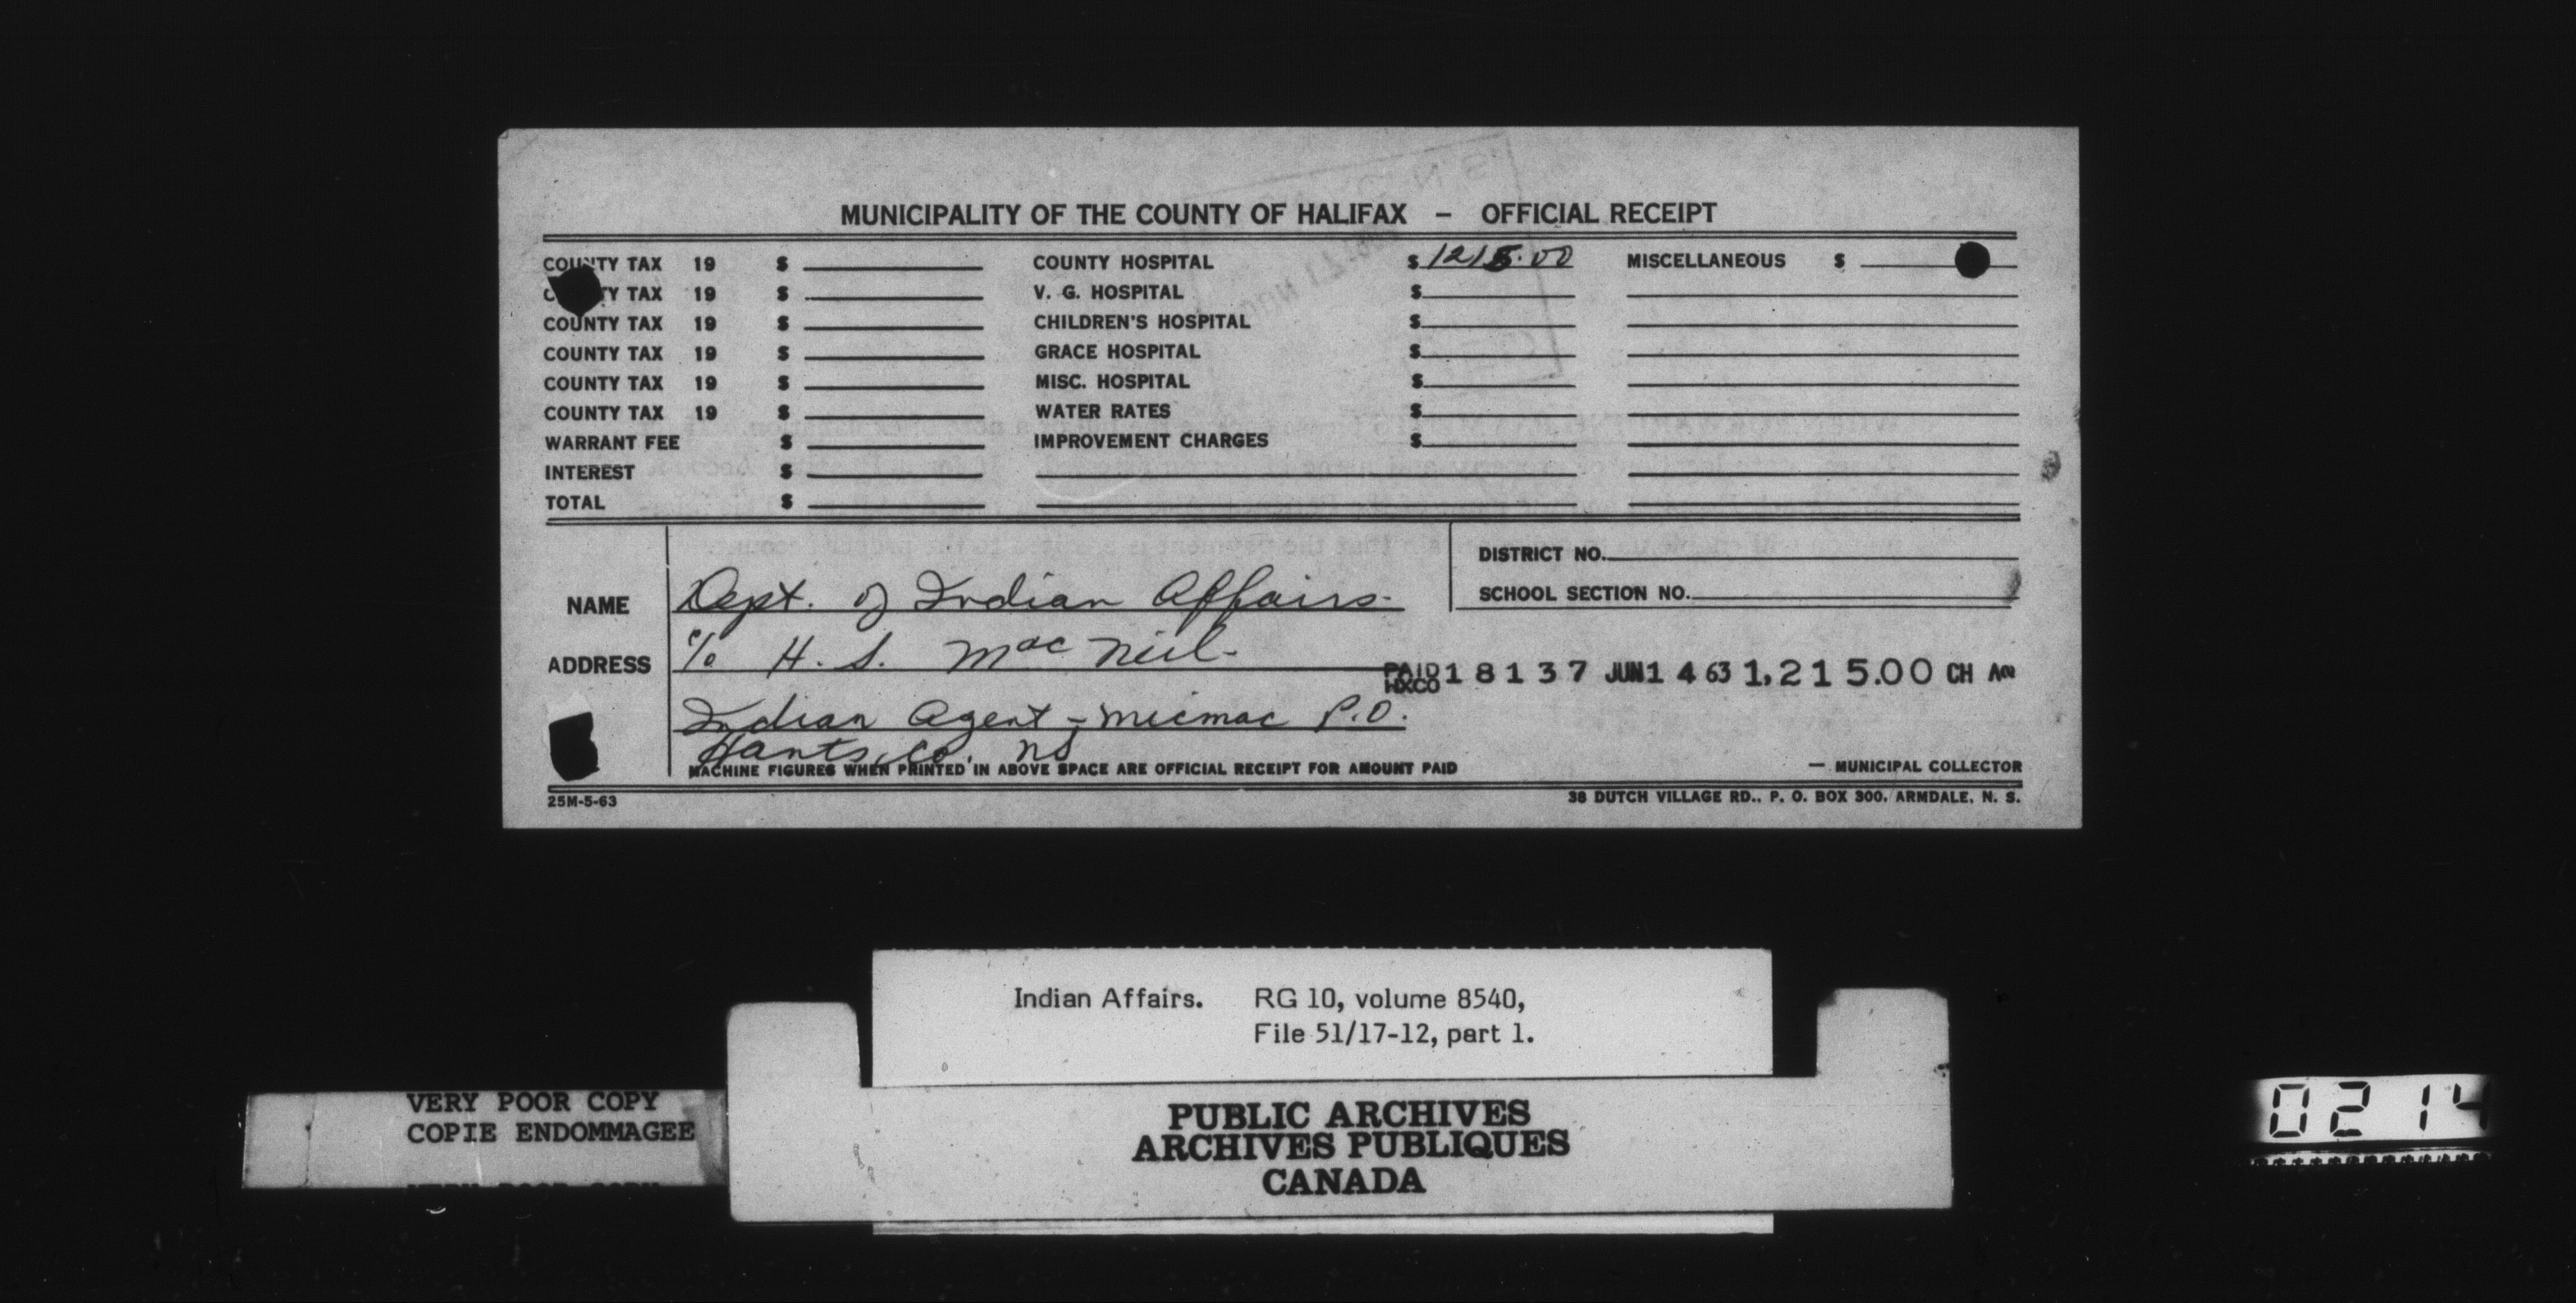 MUNICIPALITY OF THE COUNTY OF HALIFAX – OFFICIAL RECEIPT
COUNTY TAX 19 $ COUNTY HOSPITAL $ 1215.00 MISCELLANEOUS $
COUNTY TAX 19 $ V. G. HOSPITAL $
COUNTY TAX 19 $ CHILDREN'S HOSPITAL $
COUNTY TAX 19 $ GRACE HOSPITAL $
COUNTY TAX 19 $ MISC. HOSPITAL $
COUNTY TAX 19 $ WATER RATES $
WARRANT FEE $ IMPROVEMENT CHARGES $
INTEREST $
TOTAL $
DISTRICT NO.
SCHOOL SECTION NO.
NAME Dept. of Indian Affairs-
ADDRESS c/o H. S. MacNeil-
PAID HXCO 18137 JUN 14 63 1,215.00 CH
Indian Agent - Micmac P.O.
Hants Co. NS
MACHINE FIGURES WHEN PRINTED IN ABOVE SPACE ARE OFFICIAL RECEIPT FOR AMOUNT PAID
— MUNICIPAL COLLECTOR
25M-5-63
38 DUTCH VILLAGE RD., P. O. BOX 300, ARMDALE, N. S.
Indian Affairs. RG 10, volume 8540,
File 51/17-12, part 1.
VERY POOR COPY
COPIE ENDOMMAGEE
PUBLIC ARCHIVES
ARCHIVES PUBLIQUES
CANADA
0214